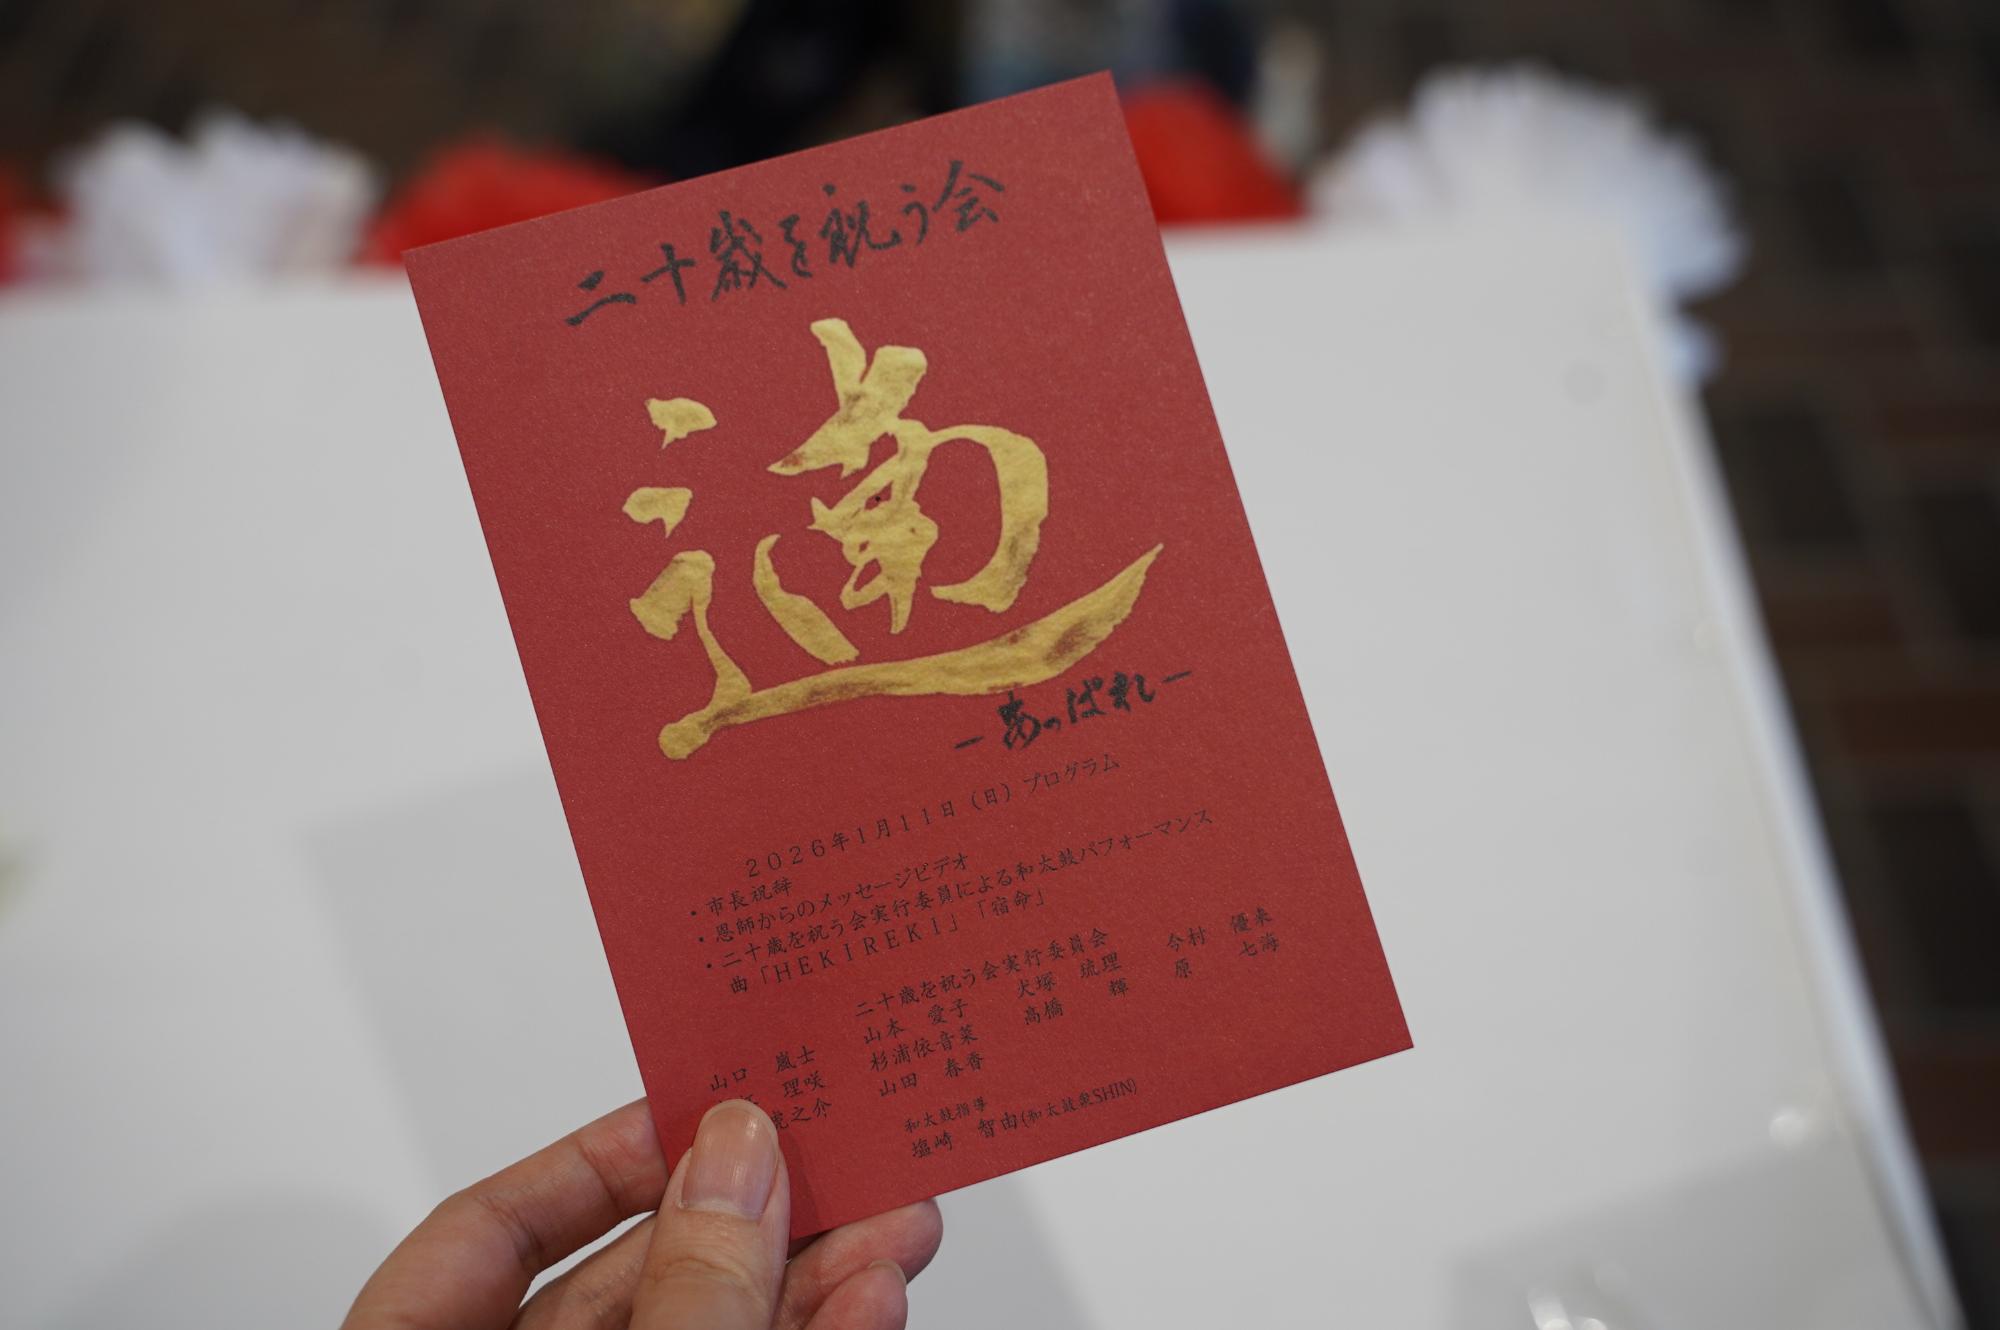 二十歳を祝う会
遖
ーあっぱれー
2026年1月11日(日)プログラム
・市長祝辞
・恩師からのメッセージビデオ
・二十歳を祝う会実行委員による和太鼓パフォーマンス
曲「HEKIREKI」「宿命」
二十歳を祝う会実行委員会
山口 嵐士 山本 愛子 犬塚 琉理 今村 優来
理咲 杉浦依音菜 高橋 輝 原 七海
虎之介 山田 春香
和太鼓指導
塩崎 智由(和太鼓衆SHIN)